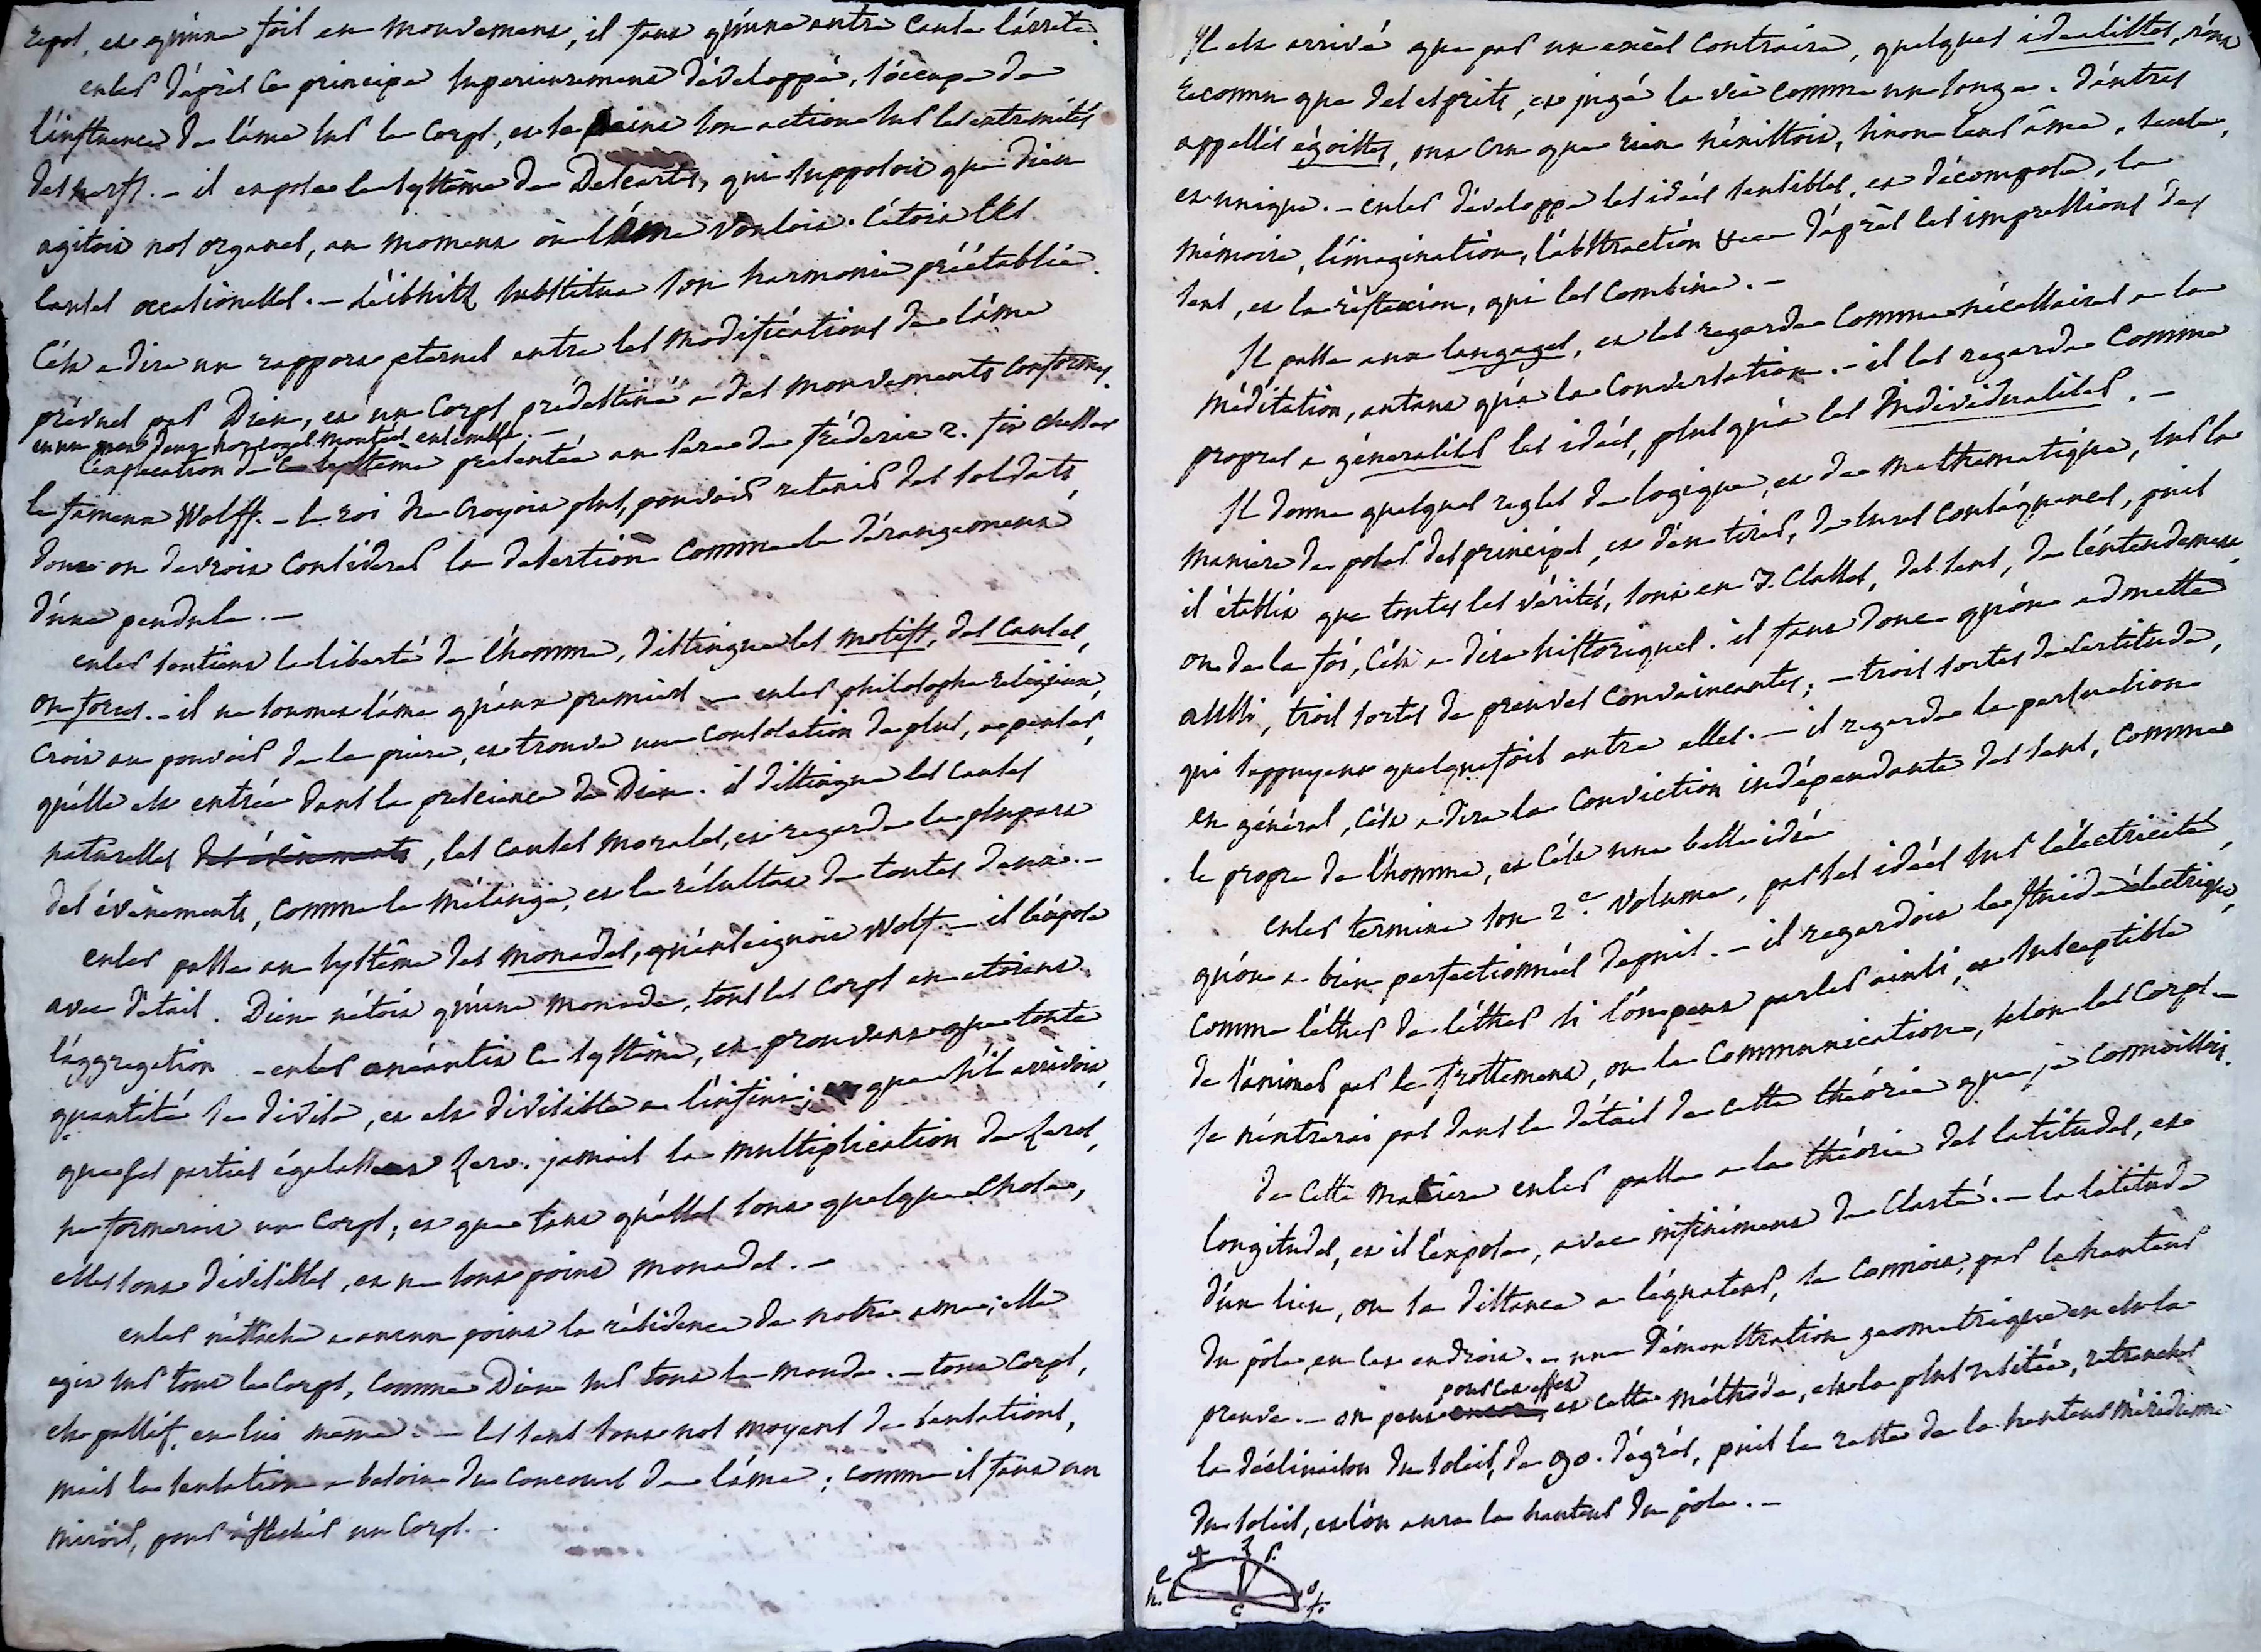 repos, et qu'une fois en mouvement, il faut qu'une autre cause l'arrête.
euler d'après ce principe supérieurement développé, s'occupe de
l'influence de l'âme sur le corps, et se peint son action sur les extremités
des nerfs. – il expose le systême de Descartes, qui supposoit que dieu
agitoit nos organes, au moment où l'âme vouloit. c'étoit les
causes occasionelles. – Leibnitz substitua son harmonie préétablie.
c'est a dire un rapport eternel entre les modifications de l'âme
prévues par Dieu, et un corps, prédestiné a des mouvements conformes.
en un mot deux horloges montées ensemble. –
l'explication de ce systême présentée au père de fréderic 2. fit chasser
le fameux Wolff. – le roi ne croyoit plus, pouvoir retenir des soldats,
dont on devroit considerer la desertion comme le dérangement
d'une pendule. –
euler soutient la liberté de l'homme, distingue les motifs, des causes,
ou forces. – il ne soumet l'âme qu'aux premiers – euler philosophe religieux,
croit au pouvoir de la prière, et trouve une consolation de plus, a penser,
qu'elle est entrée dans la prescience de Dieu. il distingue les causes
naturelles des évènements, les causes morales, et regarde la plupart
des évènements, comme le mélange, et le résultat de toutes deux. –
euler passe au systême des monades, qu'enseignoit Wolf. – il l'expose
avec détail. Dieu n'étoit qu'une monade, tous les corps en etoient
l'aggregation – euler anéantit ce systême, en prouvant que toute
quantité se divise, et est divisible a l'infini; que s'il arrivoit,
que ses parties égalassent zero. jamais la multiplication de zeros,
ne formeroit un corps; et que tant qu'elles sont quelque chose,
elles sont divisibles, et ne sont point monades. –
euler n'attache a aucun point la résidence de notre ame; elle
agit sur tout le corps, comme Dieu sur tout le monde. – tout corps,
est passif, en lui même. – les sens sont nos moyens de sensations,
mais la sensation a besoin du concours de l'âme; comme il faut un
miroir, pour réfléchir un corps. –
Il est arrivé que par un excès contraire, quelques idealistes, n'ont
reconnu que des esprits, et jugé la vie comme un songe. d'autres
appellés égoistes, ont cru que rien n'existoit, sinon leur âme, seule,
et unique. – euler développe les idées sensibles, et décompose, la
mémoire, l'imagination, l'abstraction d'après les impressions des
sens, et la réflexion, qui les combine. –
Il passe aux langages, et les regarde comme nécessaires a la
méditation, autant qu'a la conversation. – il les regarde comme
propres a géneraliser les idées, plus qu'a les individualiser. –
Il donne quelques regles de logique, et de mathematique, sur la
maniere de poser des principes, et d'en tirer, de sures conséquences, puis
il établit que toutes les vérités, sont en 3. classes, des sens, de l'entendement,
ou de la foi, c'est a dire historiques. il faut donc qu'on admette
aussi, trois sortes de preuves convaincantes; – trois sortes de certitude,
qui s'appuyent quelquefois entre elles. – il regarde la persuasion
en général, c'est a dire la conviction indépendante des sens, comme
le propre de l'homme, et c'est une belle idée
euler termine son 2e. volume, par ses idées sur l'électricité,
qu'on a bien perfectionnées depuis. – il regardoit le fluide électrique,
comme l'éther de l'éther si l'on peut parler ainsi, et susceptible
de s'animer par le frottement, ou la communication, selon les corps –
Je n'entrerai pas dans le détail de cette théorie que je connoissois.
de cette matiere euler passe a la théorie des latitudes, et
longitudes, et il l'expose, avec infiniment de clarté. – la latitude
d'un lieu, ou sa distance a l'équateur, se connoit, par la hauteur
du pôle, en cet endroit. – une démonstration geometrique en est la
preuve. – on peut pour cet effet et cette méthode, est la plus usitée, retrancher
la déclinaison du soleil, de 90. dégrés, puis le reste de la hauteur méridienne
du soleil, et l'on aura la hauteur du pole. –
e
h.
c